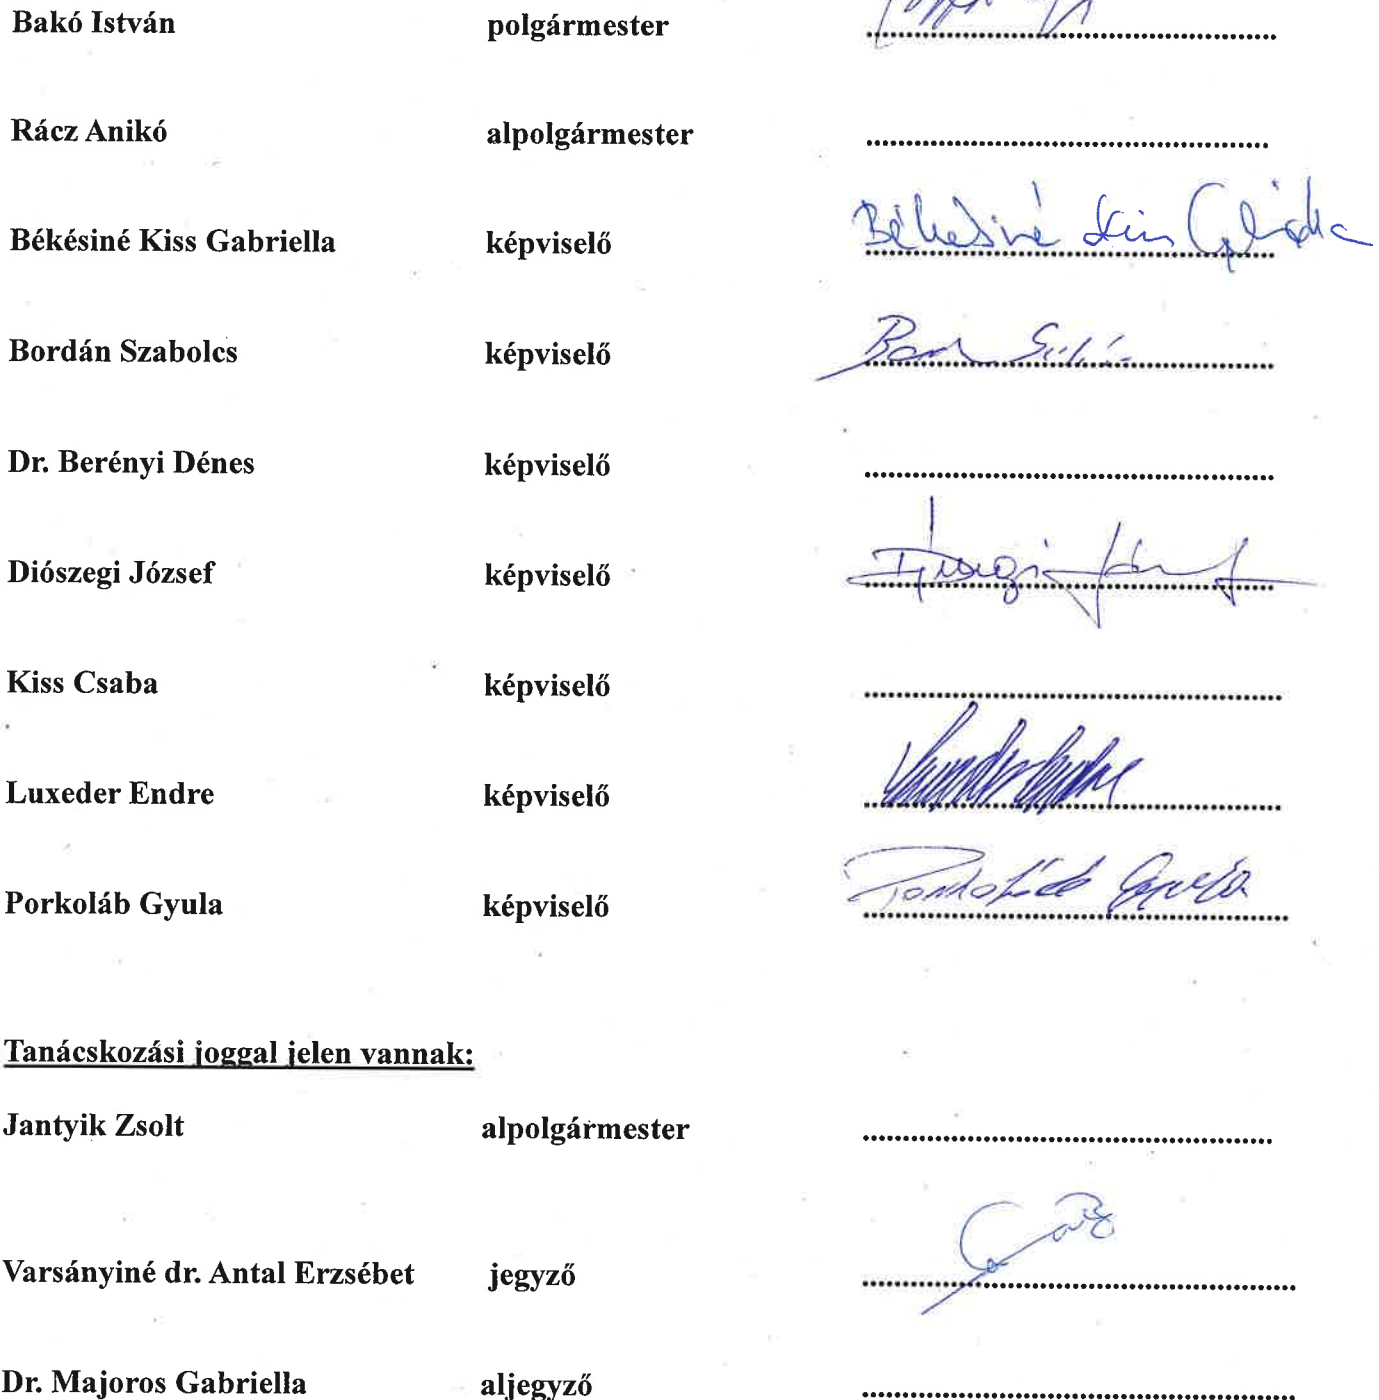 Bakó István polgármester
Rácz Anikó alpolgármester
Békésiné Kiss Gabriella képviselő Békésiné Kiss Gabriella
Bordán Szabolcs képviselő
Dr. Berényi Dénes képviselő
Diószegi József képviselő
Kiss Csaba képviselő
Luxeder Endre képviselő
Porkoláb Gyula képviselő Porkoláb Gyula
Tanácskozási joggal jelen vannak:
Jantyik Zsolt alpolgármester
Varsányiné dr. Antal Erzsébet jegyző
Dr. Majoros Gabriella aljegyző